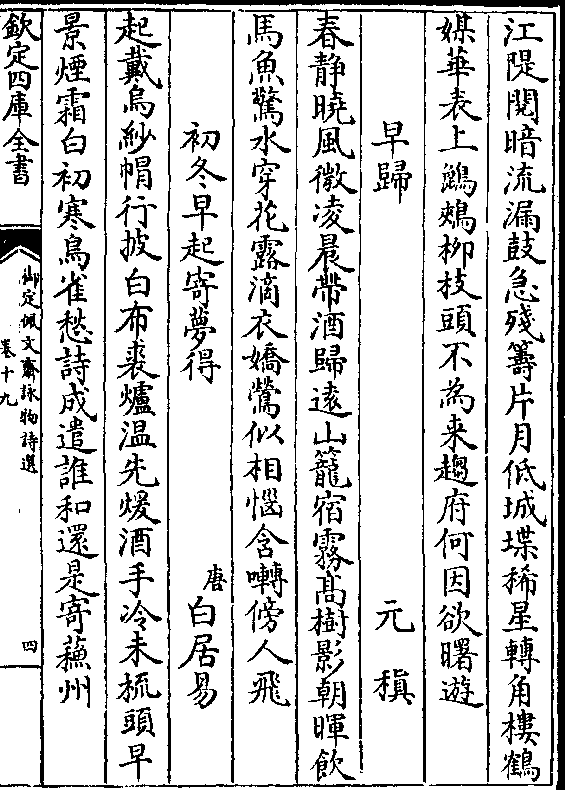 江隄閱暗流漏鼓急殘籌片月低城堞稀星轉角樓鶴
媒華表上鵷鶵柳枝頭不為来趨府何因欲曙遊
早歸 元稹
春静曉風微凌晨帶酒歸遠山籠宿霧髙樹影朝暉飲
馬魚驚水穿花露滴衣嬌鶯似相惱含囀傍人飛
初冬早起寄夢得 唐白居易
起戴烏紗帽行披白布裘爐温先煖酒手冷未梳頭早
景煙霜白初寒鳥雀愁詩成遣誰和還是寄蘓州
欽定四庫全書
御定佩文齋詠物詩選
卷十九
四